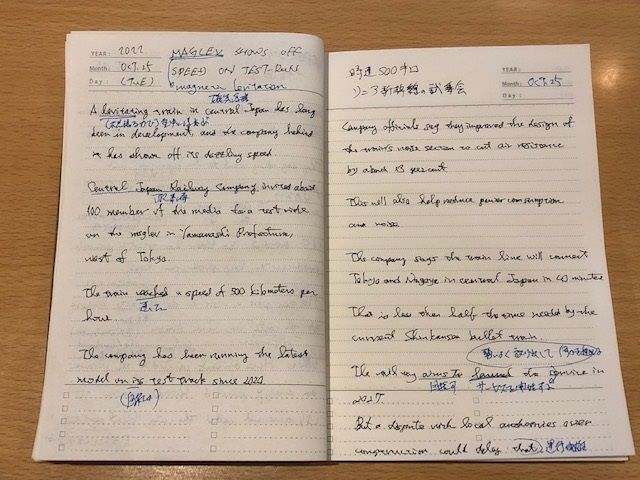 YEAR: 2022
Month: Oct. 25
Day: (TUE)
MAGLEV SHOWS OFF
SPEED ON TEST-RUNS
magnetic levitation
磁気浮揚
A levitating train in central Japan has long
been in development, and the company behind
it has shown off its dazzling speed.
Central Japan Railway Company invited about
JR東海
100 member of the media for a test ride
on the maglev in Yamanashi Prefecture,
west of Tokyo
The train reached a speed of 500 kilometers per
hour
The company has been running the latest
model on its test track since 2020
YEAR:
Month: Oct. 25
Day:
時速500キロ
リニア新幹線の試乗会
Company officials say they improved the design of
the train's nose section to cut air resistance
by about 13 percent
This will also help reduce power consumption
and noise
The company says the train line will connect
Tokyo and Nagoya in central Japan in 40 minutes
That is less than half the time needed by the
current Shinkansen bullet train
The railway aims to launch the service in
目指す
サービスを開始する
2027
But a dispute with local authorities over
construction could delay that